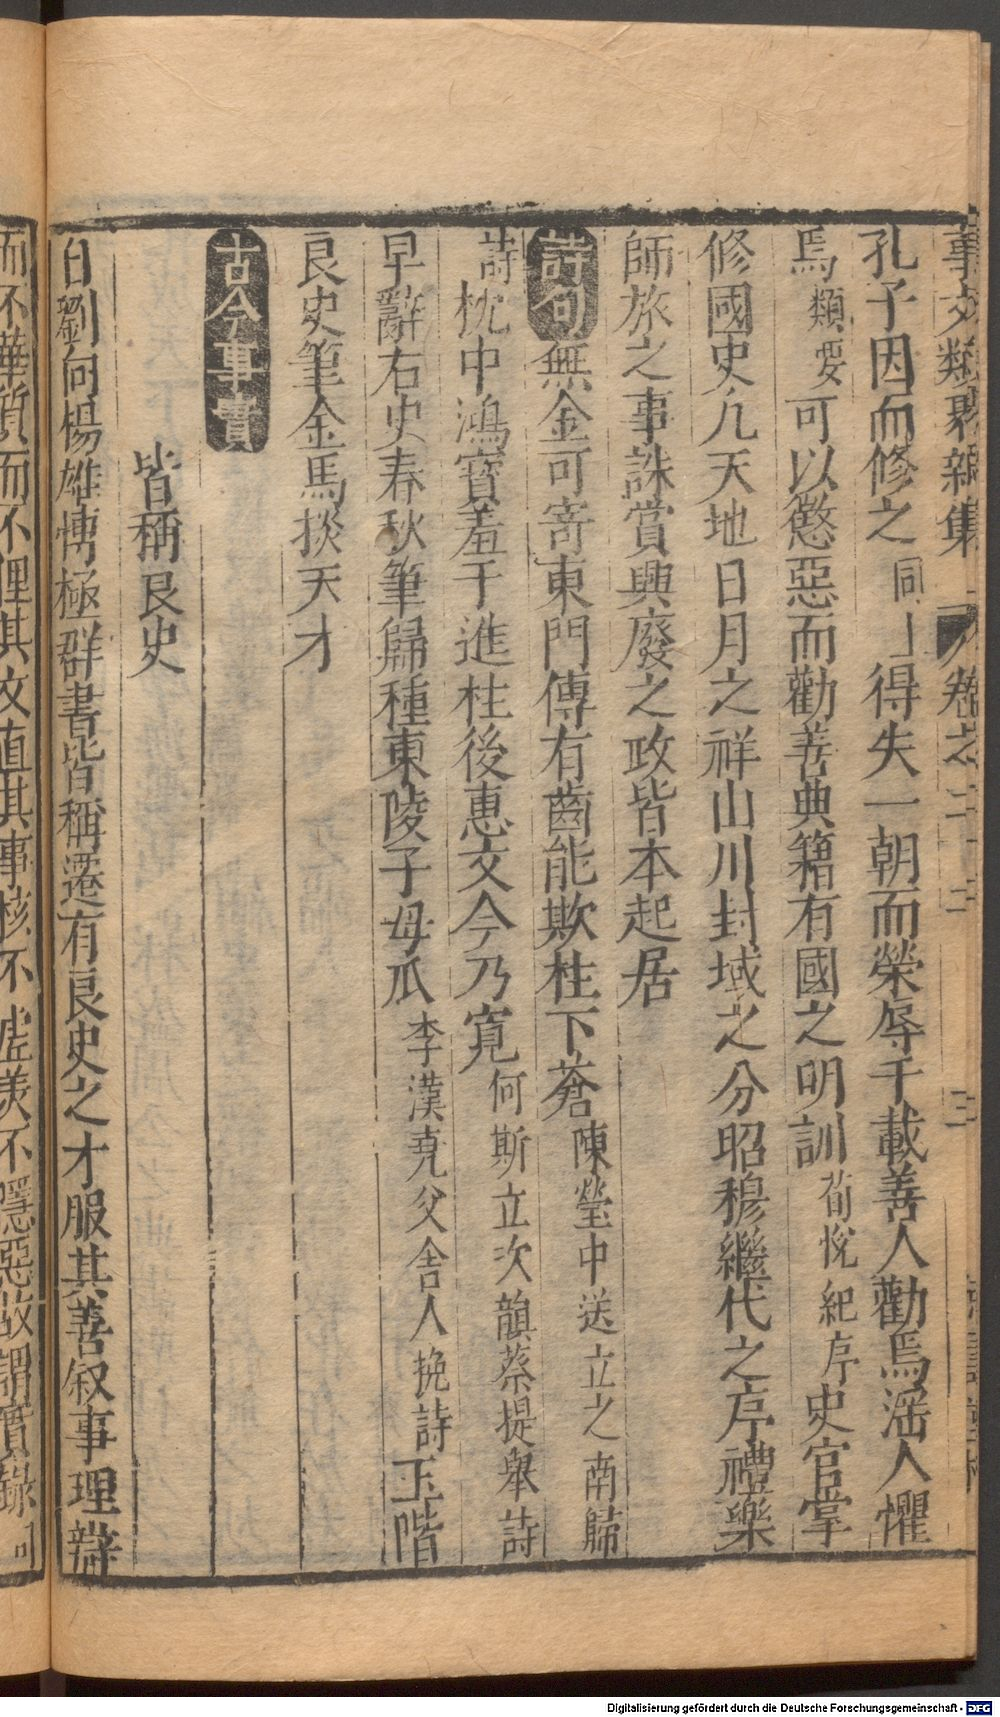 事文類聚新集 卷之二十三 三
孔子因而修之同上得失一朝而榮辱千載善人勸焉滛人懼
焉類要可以懲惡而勸善典籍有國之明訓荀悅紀序史官掌
修國史凢天地日月之祥山川封域之分昭穆繼代之序禮樂
師旅之事誅賞興廢之政皆本起居
詩句無金可寄東門傳有齒能欺柱下蒼陳瑩中送立之南歸
詩枕中鴻寶羞干進柱後惠文今乃寬何斯立次韻蔡提舉詩
早辭右史春秋筆歸種東陵子母瓜李漢堯父舍人挽詩玉階
良史筆金馬掞天才
古今事實
皆稱良史
自劉向楊雄愽極群書皆稱遷有良史之才服其善叙事理辯
而不華質而不俚其文直其事核不虚羙不隱惡故謂實錄
Digitalisierung gefördert durch die Deutsche Forschungsgemeinschaft - DFG